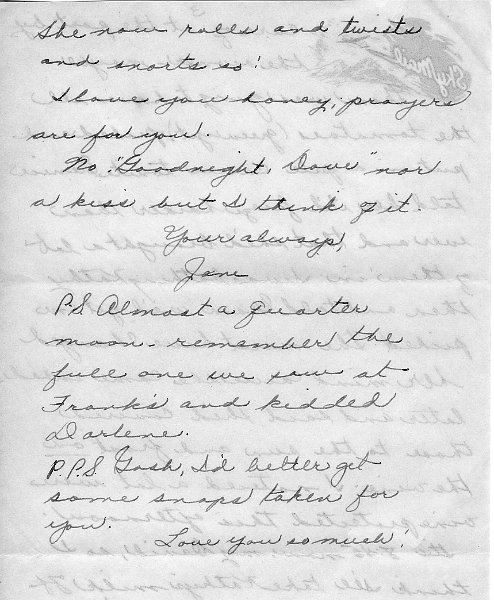 She now rolls and twists
and snorts so!
I love you honey; prayers
are for you.
No "Goodnight, Dave" nor
a kiss but I think of it.
Your always,
Jane
P.S. Almost a quarter
moon - remember the
full one we saw at
Frank's and kidded
Darlene.
P.P.S. Gosh, I'd better get
some snaps taken for
you.
Love you so much!
Sky Mail